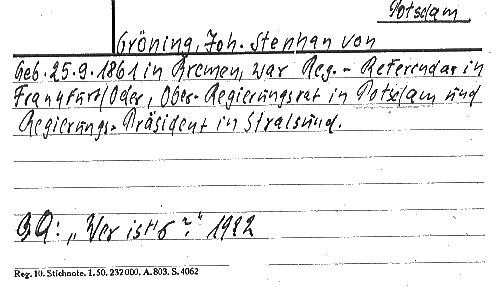 Potsdam
Gröning, Joh. Stephan von
Geb. 25.9.1861 in Bremen, war Reg.- Referendar in
Frankfurt/Oder, Ober-Regierungsrat in Potsdam und
Regierungs-Präsident in Stralsund.
„Wer ist's?" 1922
Reg. 10. Stichnote. 1.50. 232000. A. 803. S. 4062